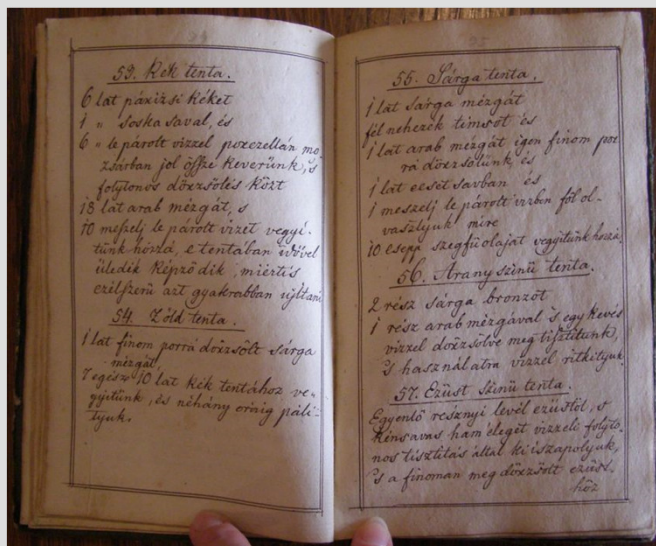 53. Kék tenta.
6 lat párizsi kéket
1 " soska saval, és
6 " le párott vizzel porczellán mo
zsárban jol öszsze keverünk, 's
folytonos dörzsölés közt
18 lat arab mézgát, s
10 meszelj le párott vizet vegyi-
tünk hozzá, e tentában idővel
üledik képződik, miértis
czélszerü azt gyakrabban ujitani
54. Zöld tenta.
1 lat finom porrá dörzsölt sárga
mézgát,
7 egész 10 lat kék tentához ve-
gyitünk, és néhány oráig páli-
tyuk.
55. Sárga tenta.
1 lat sárga mézgát
fél nehezék timsót és
1 lat arab mézgát igen finom por
rá dörzsölünk és
1 lat eczet savban és
1 meszelj le párott vizben föl ol-
vasztyuk mire
10 csepp szegfü olaját vegyitünk hozzá,
56. Arany szinü tenta.
2 rész sárga bronzot
1 rész arab mézgával 's egy kevés
vizzel dörzsölve meg tisztitunk,
's használatra vizzel ritkityuk.
57. Ezüst szinü tenta.
Egyenlő resznyi levél ezüstöl, s
kénsavas ham éleget vizzeli folyto-
nos tisztitás által ki iszapolyuk,
's a finoman meg dörzsölt ezüst-
höz